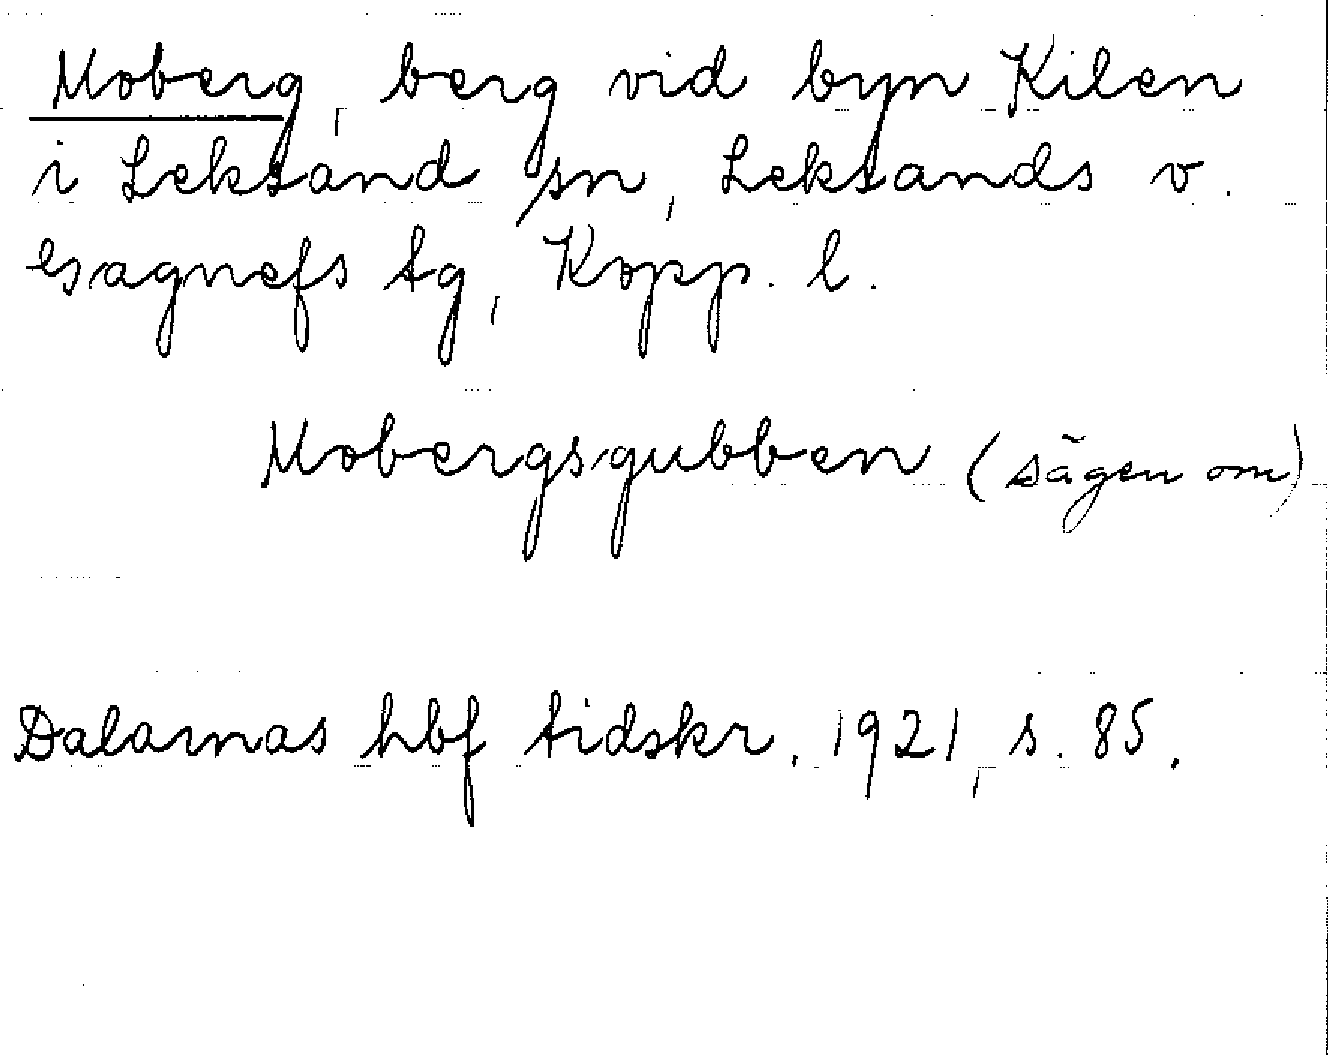 Moberg, berg vid byn Kilen
i Leksand sn, Leksands v.
Gagnefs tg, Kopp. l.
Mobergsgubben (sägen om)
Dalarnas hbf tidskr. 1921, s. 85.